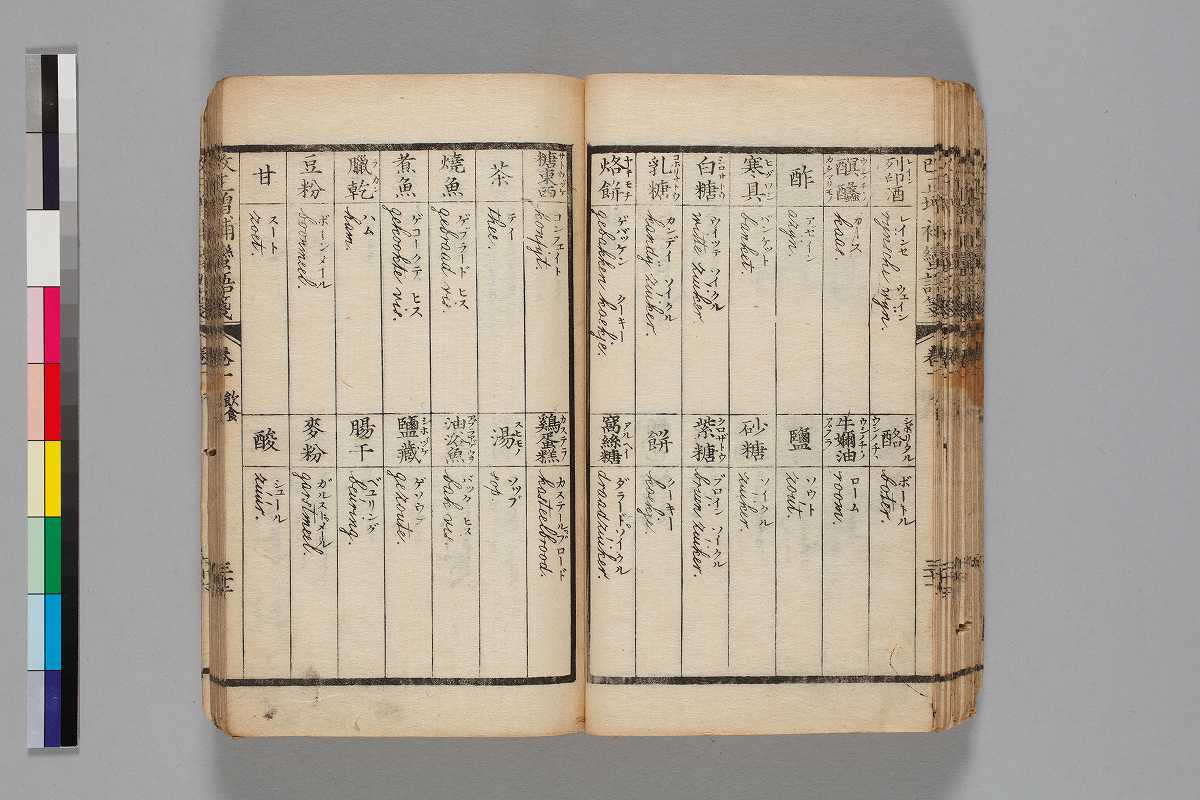 列印酒
レイン
レインセ ウェイン
rynsche wyn.
醍醢
カース
kaas.
酢
アゼーン
azyn.
寒具
ヒグワシ
banket.
白糖
シロサトウ
ウイッテ ソイクル
witte zuiker.
乳糖
コホリサトウ
カンデイ ソイクル
kandy zuiker.
烙餅
ヤキモチ
ゲバッケン クーキー
gebakken koekje.
酪
ボートル
boter.
牛嬭油
ローム
room.
鹽
ソウト
zout.
砂糖
ソイクル
zuiker.
紫糖
クロサトウ
ブロイン ソイクル
bruin zuiker.
餅
クーキー
koekje.
窩絲糖
アルヘイ
ダラードソイクル
draadzuiker.
糖東西
サトウヅケ
コンフェイト
konfyt.
茶
テー
thee.
燒魚
ゲブラード ヒス
gebraad vis.
煮魚
ゲコークテ ヒス
gekookte vis.
臘乾
ラカン
ハム
ham.
豆粉
ボーンメール
boonmeel.
甘
スート
zoet.
鷄蛋糕
カステラ
カステールブロード
kasteelbrood.
湯
スヒモノ
ソップ
sop.
油浴魚
バック ヒス
bak vis.
鹽藏
シホヅケ
ゲソウテ
gezoute.
腸干
ビユリング
beuring.
麥粉
ガルストメール
garstmeel.
酸
シュール
zuur.
改正増補蠻語箋
卷一
飲食
三十二